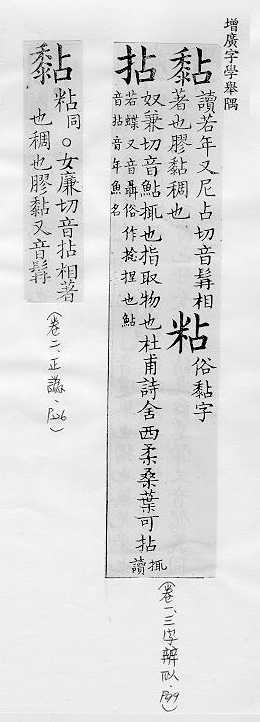 增廣字學舉隅
黏讀若年又尼占切音髯相
著也膠黏稠也
粘俗黏字
拈奴兼切音鮎㧢也指取物也杜甫詩舍西柔桑葉可拈
若蝶又音聶俗作捻捏也鮎
音拈音年魚名
㧢讀
(卷一、三字辨似、P99)
黏粘同○女廉切音拈相著
也稠也膠黏又音髯
(卷二、正譌、P226)